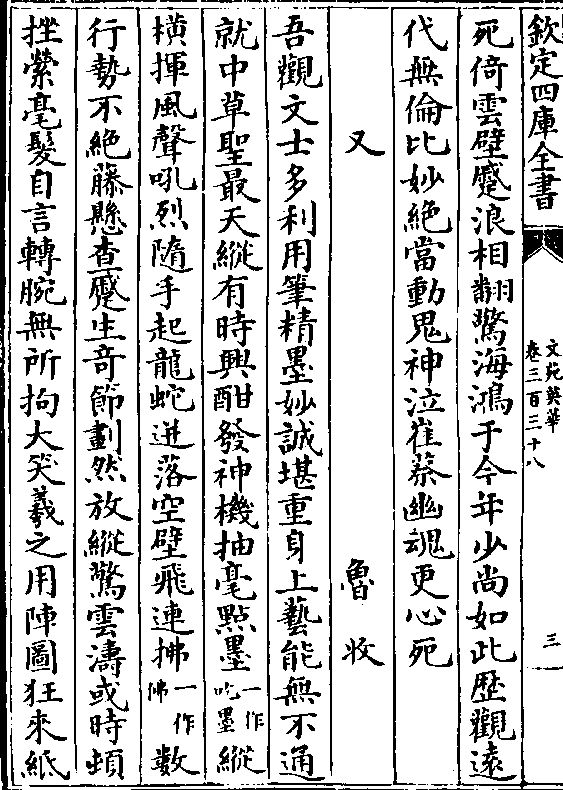 欽定四庫全書
文苑英華
卷三百三十八
三
死倚雲壁蹙浪相翻驚海鴻于今年少尚如此歴觀遠
代無倫比妙絶當動鬼神泣崔蔡幽魂更心死
又 魯收
吾觀文士多利用筆精墨妙誠堪重身上藝能無不通
就中草聖最天縱有時興酣發神機抽毫點墨一作吃墨縱
横揮風聲吼烈隨手起龍蛇迸落空壁飛連拂一作佛數
行勢不絶藤懸查蹙生竒節劃然放縱驚雲濤或時頓
挫縈毫髮自言轉腕無所拘大笑羲之用陣圖狂來紙